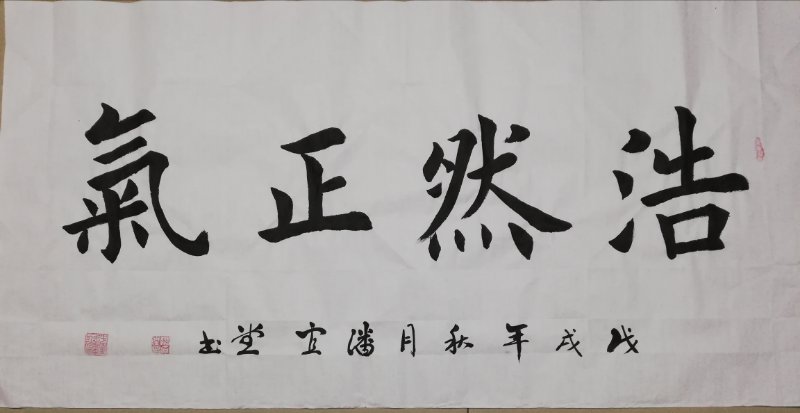 浩然正氣
戊戌年秋月潘宜堂书